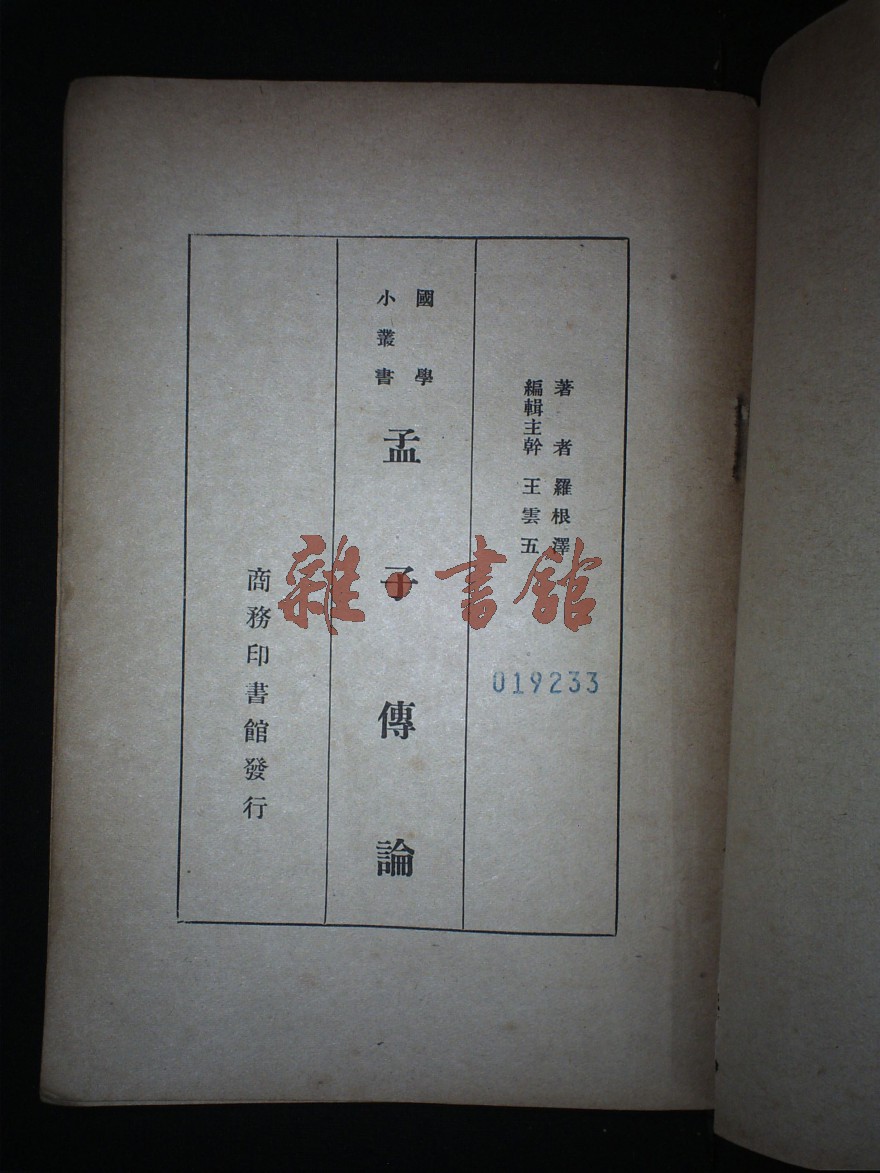 著者 羅根澤
編輯主幹 王雲五
國學
小叢書
孟子傳論
商務印書館發行
019233
雜·書館